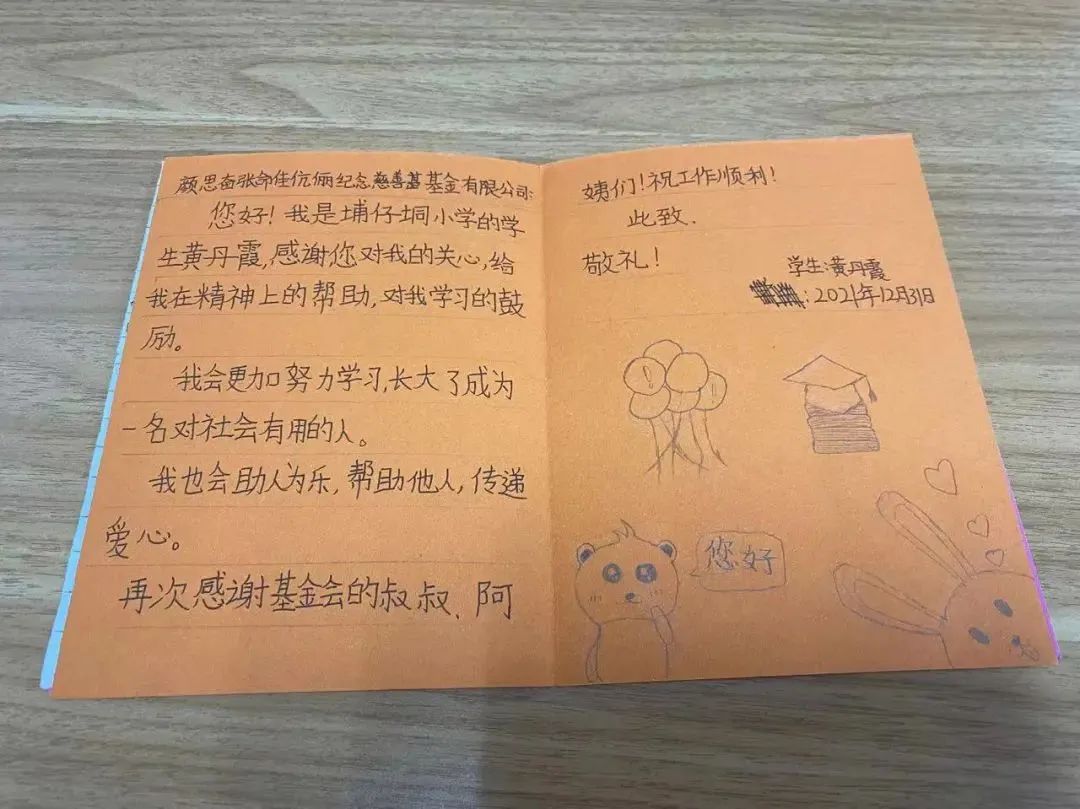 颜思奋张命住伉俪纪念慈善基基金有限公司:
您好!我是埔仔垌小学的学
生黄丹霞,感谢您对我的关心,给
我在精神上的帮助,对我学习的鼓
励。
我会更加努力学习,长大了成为
一名对社会有用的人。
我也会助人为乐,帮助他人,传递
爱心。
再次感谢基金会的叔叔、阿
姨们!祝工作顺利!
此致.
敬礼!
学生:黄丹霞
:2021年12月31日
您好